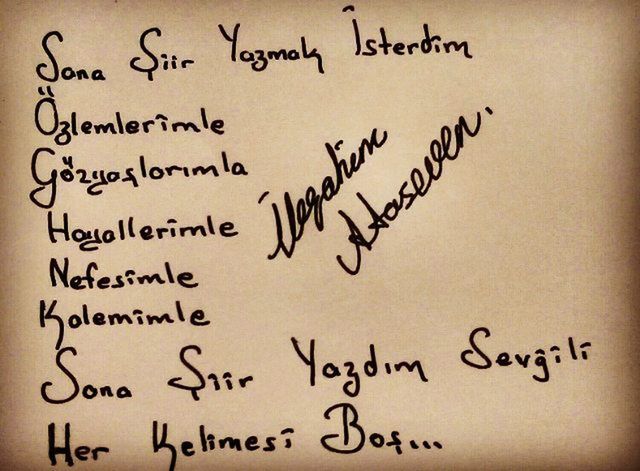 Sana Şiir Yazmak İsterdim
Özlemlerimle
Gözyaşlarımla
Hayallerimle
Nefesimle
Kalemimle
Sana Şiir Yazdım Sevğili
Her Kelimesi Boş...
Ataseven.